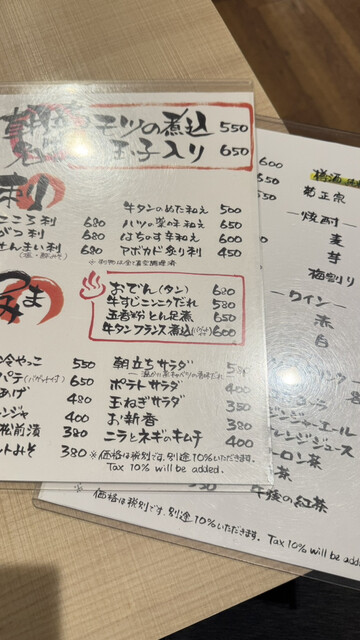 モツの煮込 550
玉子入り 650
刺り
こころ刺 680
がつ刺 680
せんまい刺 680
牛タンのぬた和え 500
ハツの薬味和え 600
はちのす辛和え 600
アボカド炙り刺 450
おでん(タン) 680
牛すじニンニクだれ 580
五香粉とん足煮 650
牛タンフランス煮込(バゲット付) 600
つまみ
冷やっこ 550
パテ(バゲット付) 650
あげ 480
ンジャ 400
松前漬 380
ットみそ 380
朝立ちサラダ
ポテトサラダ 400
玉ねぎサラダ 350
お新香 380
ニラとネギのキムチ 400
※価格は税別です、別途10%いただきます。
Tax 10% will be added.
600
650
樽酒
菊正宗
—焼酎—
麦
芋
梅割り
—ワイン—
赤
白
ジンジャーエール
オレンジジュース
ーロン茶
茶
午後の紅茶
※価格は税別です、別途10%いただきます。 Tax 10% will be added